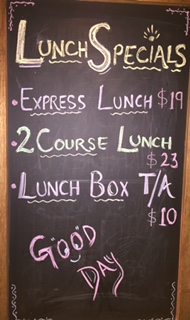 Lunch Specials
Express Lunch $19
2 Course Lunch
$23
Lunch Box T/A
$10
Good
Day